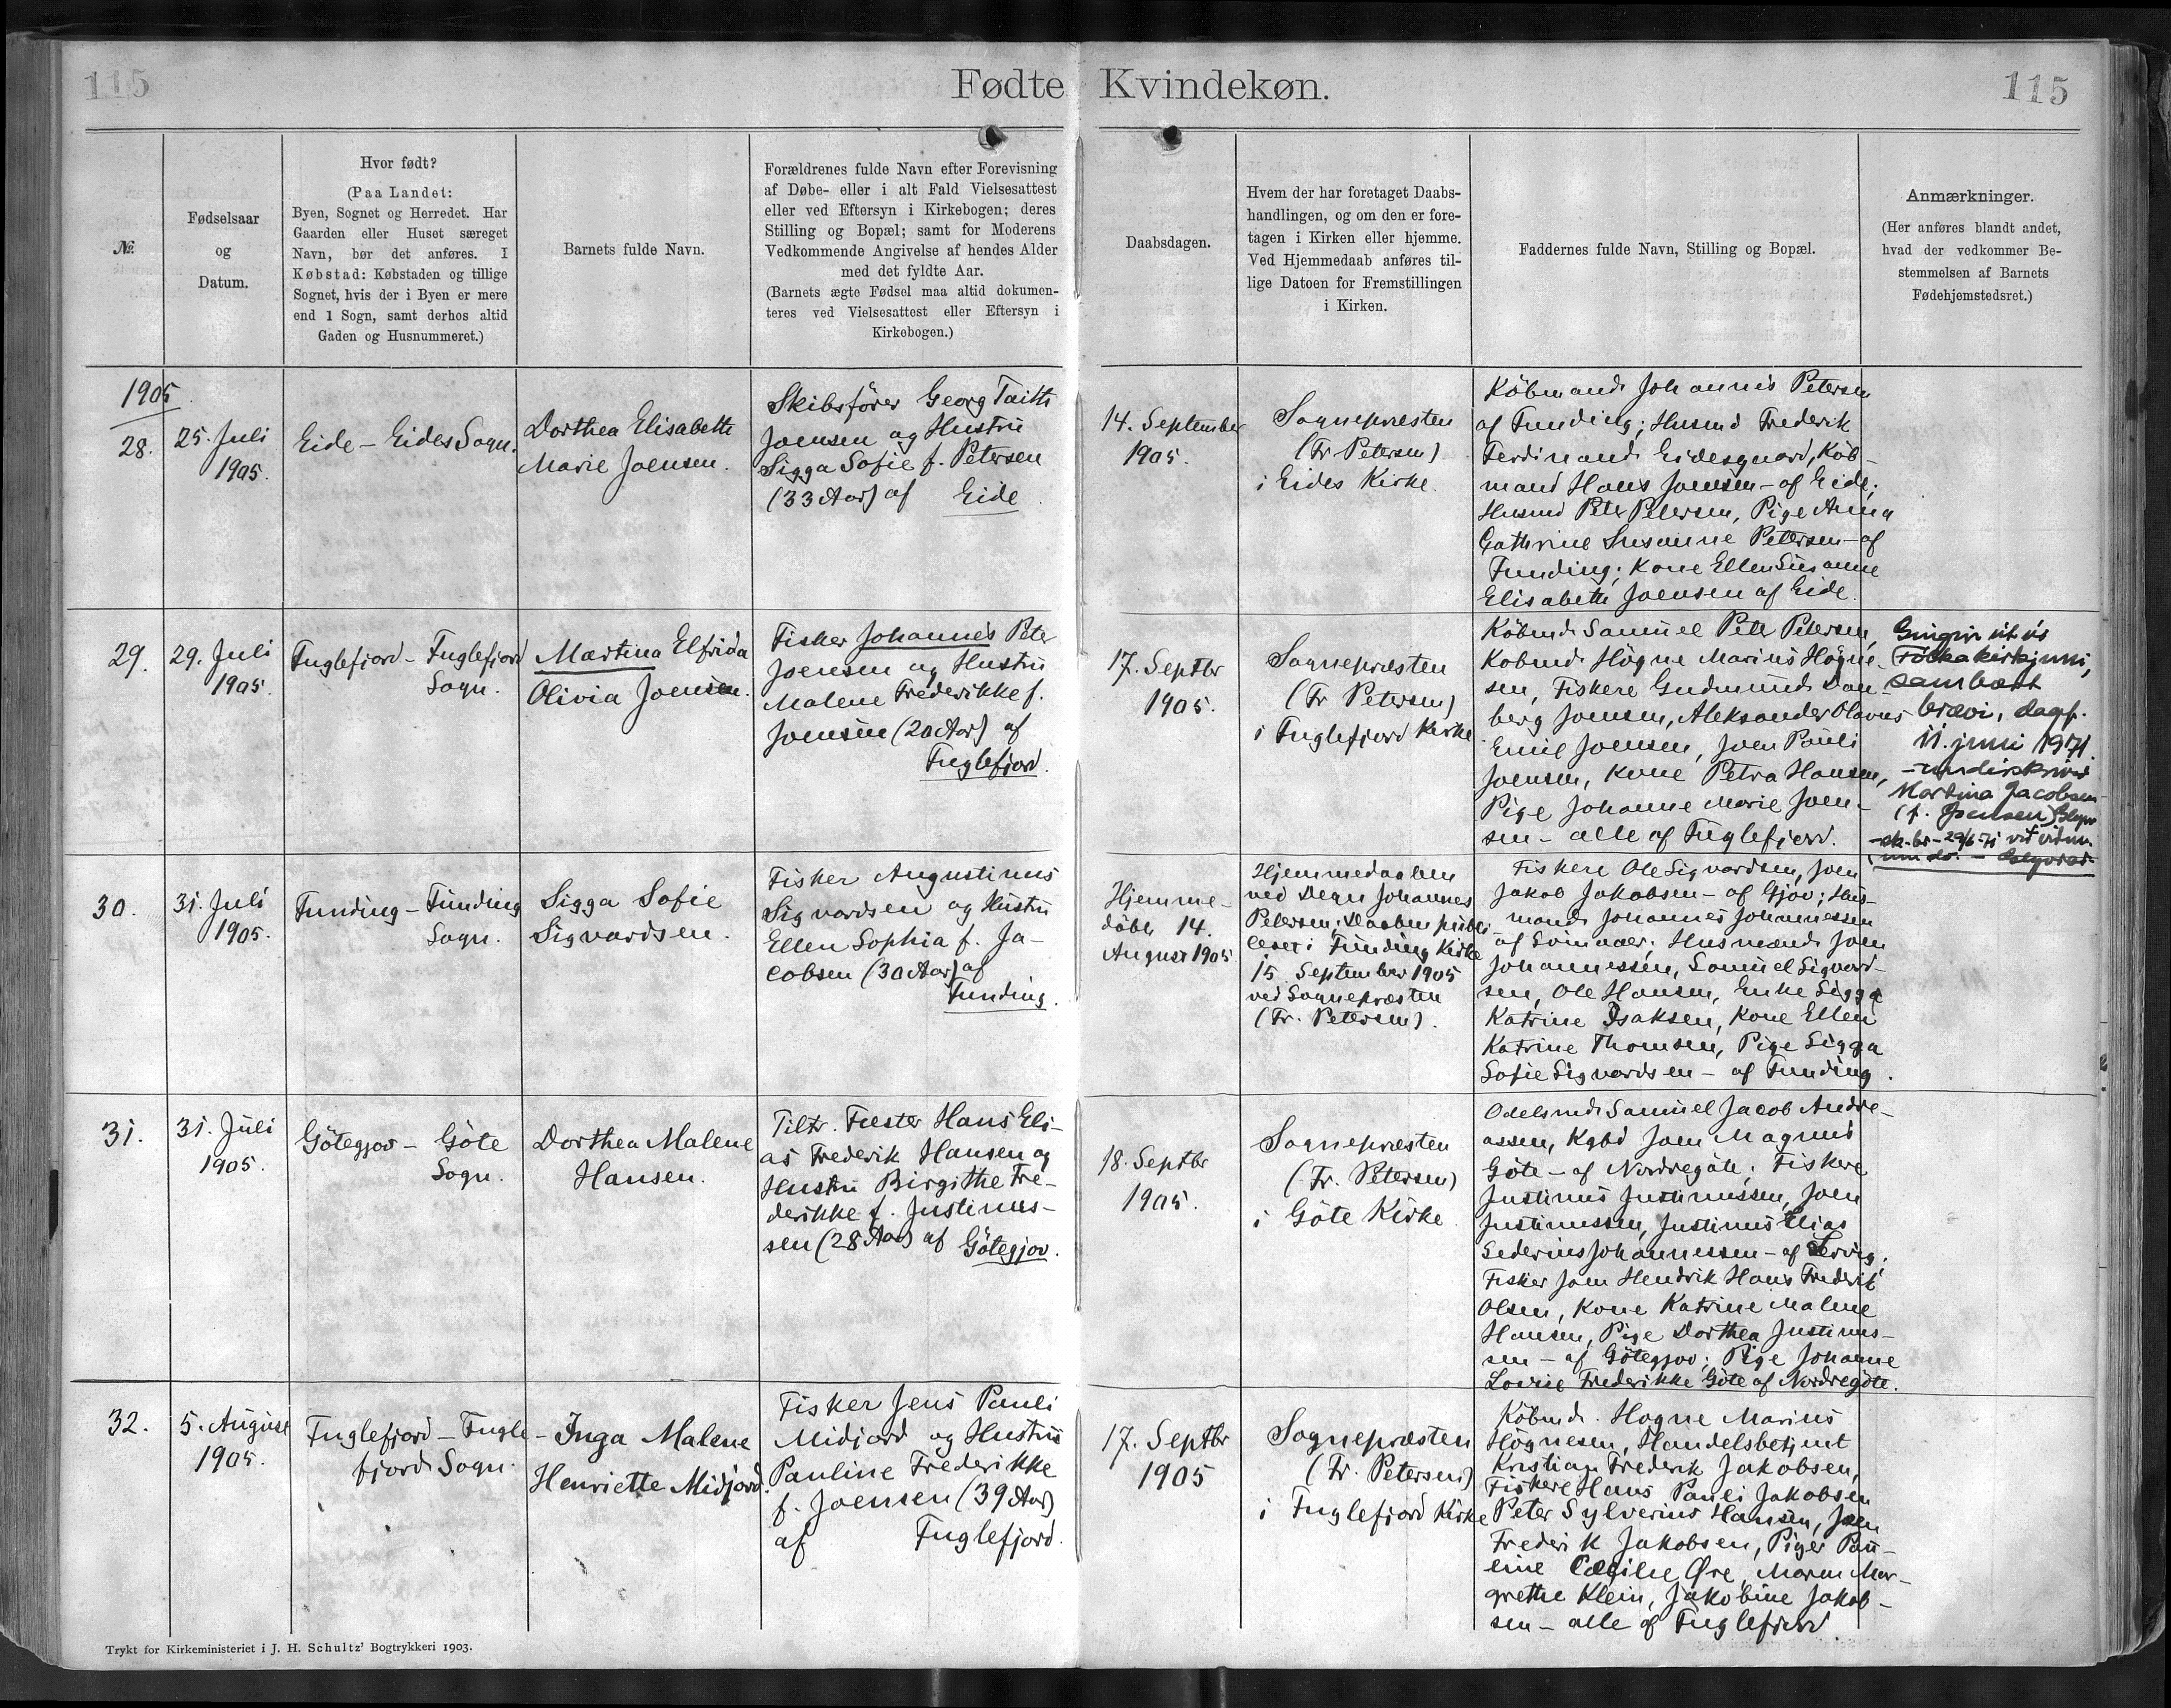 115
Fødte Kvindekøn.
115
№
Fødselsaar
og
Datum.
Hvor født?
(Paa Landet:
Byen, Sognet og Herredet. Har
Gaarden eller Huset særeget
Navn, bør det anføres. I
Købstad: Købstaden og tillige
Sognet, hvis der i Byen er mere
end 1 Sogn, samt derhos altid
Gaden og Husnummeret.)
Barnets fulde Navn.
Forældrenes fulde Navn efter Forevisning
af Døbe- eller i alt Fald Vielsesattest
eller ved Eftersyn i Kirkebogen; deres
Stilling og Bopæl; samt for Moderens
Vedkommende Angivelse af hendes Alder
med det fyldte Aar.
(Barnets ægte Fødsel maa altid dokumen-
teres ved Vielsesattest eller Eftersyn i
Kirkebogen.)
Daabsdagen.
Hvem der har foretaget Daabs-
handlingen, og om den er fore-
tagen i Kirken eller hjemme.
Ved Hjemmedaab anføres til-
lige Datoen for Fremstillingen
i Kirken.
Faddernes fulde Navn, Stilling og Bopæl.
Anmærkninger.
(Her anføres blandt andet,
hvad der vedkommer Be-
stemmelsen af Barnets
Fødehjemstedsret.)
1905
28.
25. Juli
1905.
Eide - Eides Sogn.
Dorthea Elisabeth
Marie Joensen.
Skibsfører Georg Taitt
Joensen og Hustru
Sigga Sofie f. Petersen
(33 Aar) af Eide
14. September
1905.
Sognepræsten
(Fr Petersen)
i Eides Kirke.
Købmand Johannis Petersen
af Funding; Husmd Frederik
Ferdinand Eidesgaard, Køb-
mand Hans Joensen - af Eide;
Husmd Peter Petersen, Pige Anna
Cathrine Susanne Petersen - af
Funding; Kone Ellen Susanne
Elisabeth Joensen af Eide.
29.
29. Juli
1905.
Fuglefjord - Fuglefjord
Sogn.
Martina Elfrida
Olivia Joensen.
Fisker Johannes Peter
Joensen og Hustru
Malene Frederikke f.
Joensen (20 Aar) af
Fuglefjord.
17. Septbr
1905.
Sognepræsten
(Fr Petersen)
i Fuglefjord Kirke
Købmd. Samuel Peter Petersen,
Købmd. Högne Marius Högne-
sen, Fiskere Gudmund Dan-
berg Joensen, Aleksander Olavus
Emil Joensen, Joen Pauli
Joensen, Kone Petra Hansen,
Pige Johanne Marie Joen-
sen - alle af Fuglefjord.
Gingin út úr
Fólkakirkjuni,
sambært
brævi, dagf.
11. juni 1971.
- undirskrivað
Martina Jacobsen
(f. Joensen)
30.
31. Juli
1905.
Funding - Funding
Sogn.
Sigga Sofie
Sigvardsen.
Fisker Augustinus
Sigvardsen og Hustru
Ellen Sophia f. Ja-
cobsen (30 Aar) af
Funding.
Hjemme-
døbt 14.
August 1905
Hjemmedaaben
ved Degn Johannes
Petersen; Daaben publi-
ceret i Funding Kirke
15. September 1905
ved Sognepræsten
(Fr. Petersen).
Fiskere Ole Sigvardsen, Joen
Jakob Jakobsen - af Gjov; Hus-
mand Johannes Johannessen
af Svinaaer; Husmænd Joen
Johannessen, Samuel Sigvard-
sen, Ole Hansen, Enke Sigga
Katrine Isaksen, Kone Ellen
Katrine Thomsen, Pige Sigga
Sofie Sigvardsen - af Funding.
31.
31. Juli
1905.
Götegjov - Göte
Sogn.
Dorthea Malene
Hansen.
Tiltr. Fæster Hans Eli-
as Frederik Hansen og
Hustru Birgithe Fre-
derikke f. Justinus-
sen (28 Aar) af Götegjov.
18. Septbr
1905.
Sognepræsten
(Fr. Petersen)
i Göte Kirke.
Odelsmd Samuel Jacob Andre-
assen, Kgbd Joen Magnus
Göte - af Nordregöte; Fiskere
Justinus Justinussen, Joen
Justinussen, Justinus Elias
Johannessen - af Lervig;
Fisker Joen Hendrik Hans Frederik
Olsen, Kone Katrine Malene
Hansen, Pige Dorthea Justinus-
sen - af Götegjov; Pige Johanne
Lovise Frederikke Göte af Nordregöte.
32.
5. August
1905.
Fuglefjord - Fugle-
fjord Sogn.
Inga Malene
Henriette Midjord.
Fisker Jens Pauli
Midjord og Hustru
Pauline Frederikke
f. Joensen (39 Aar)
af Fuglefjord.
17. Septbr
1905
Sognepræsten
(Fr. Petersen)
i Fuglefjord Kirke
Købmd. Hogne Marius
Högnesen, Handelsbetjent
Kristian Frederik Jakobsen,
Fiskere Hans Pauli Jakobsen
Peter Sylverius Hansen, Joen
Frederik Jakobsen, Piger Pau-
line Cæcilie Øre, Maren Mar-
grethe Klein, Jakobine Jakob-
sen - alle af Fuglefjord.
Trykt for Kirkeministeriet i J. H. Schultz' Bogtrykkeri 1903.